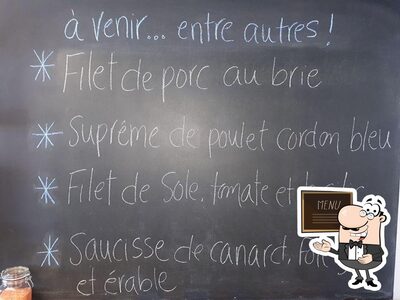 à venir... entre autres!
* Filet de porc au brie
* Suprême de poulet cordon bleu
* Filet de Sole, tomate et
* Saucisse de canard,
et érable
MENU